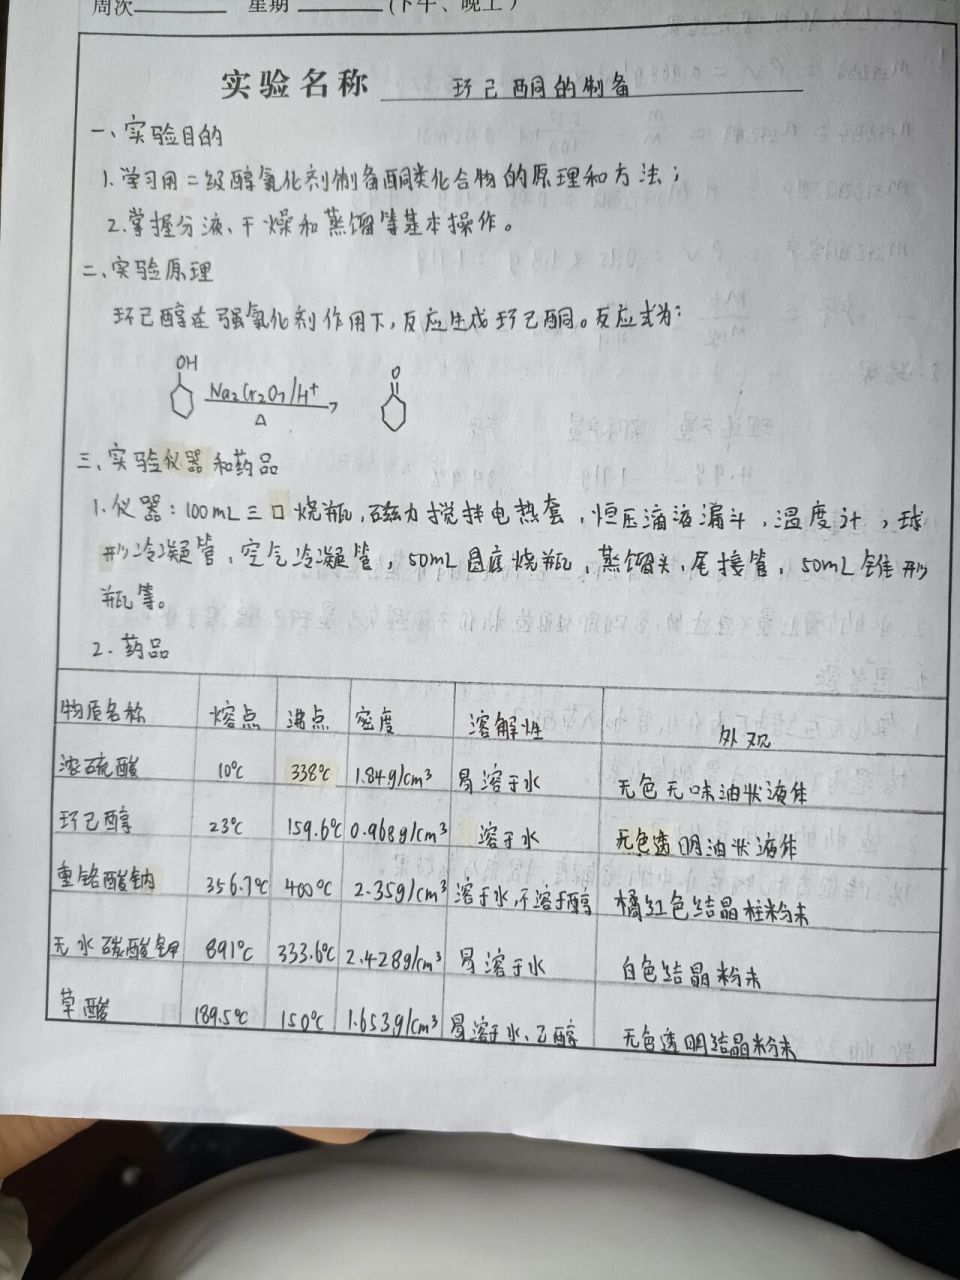 周次 星期 (下午、晚上)
实验名称 环己酮的制备
一、实验目的
1.学习用二级醇氧化剂制备酮类化合物的原理和方法；
2.掌握分液、干燥和蒸馏等基本操作。
二、实验原理
环己醇在强氧化剂作用下，反应生成环己酮。反应式为：
OH Na₂Cr₂O₇/H⁺ O
△
三、实验仪器和药品
1.仪器：100mL三口烧瓶，磁力搅拌电热套，恒压滴液漏斗，温度计，球
形冷凝管，空气冷凝管，50mL圆底烧瓶，蒸馏头，尾接管，50mL锥形
瓶等。
2.药品
物质名称 熔点 沸点 密度 溶解性 外观
浓硫酸 10℃ 338℃ 1.84g/cm³ 易溶于水 无色无味油状液体
环己醇 23℃ 159.6℃ 0.968g/cm³ 溶于水 无色透明油状液体
重铬酸钠 356.7℃ 400℃ 2.35g/cm³ 溶于水，不溶于醇 橘红色结晶柱粉末
无水碳酸钾 891℃ 333.6℃ 2.428g/cm³ 易溶于水 白色结晶粉末
草酸 189.5℃ 150℃ 1.653g/cm³ 易溶于水、乙醇 无色透明结晶粉末